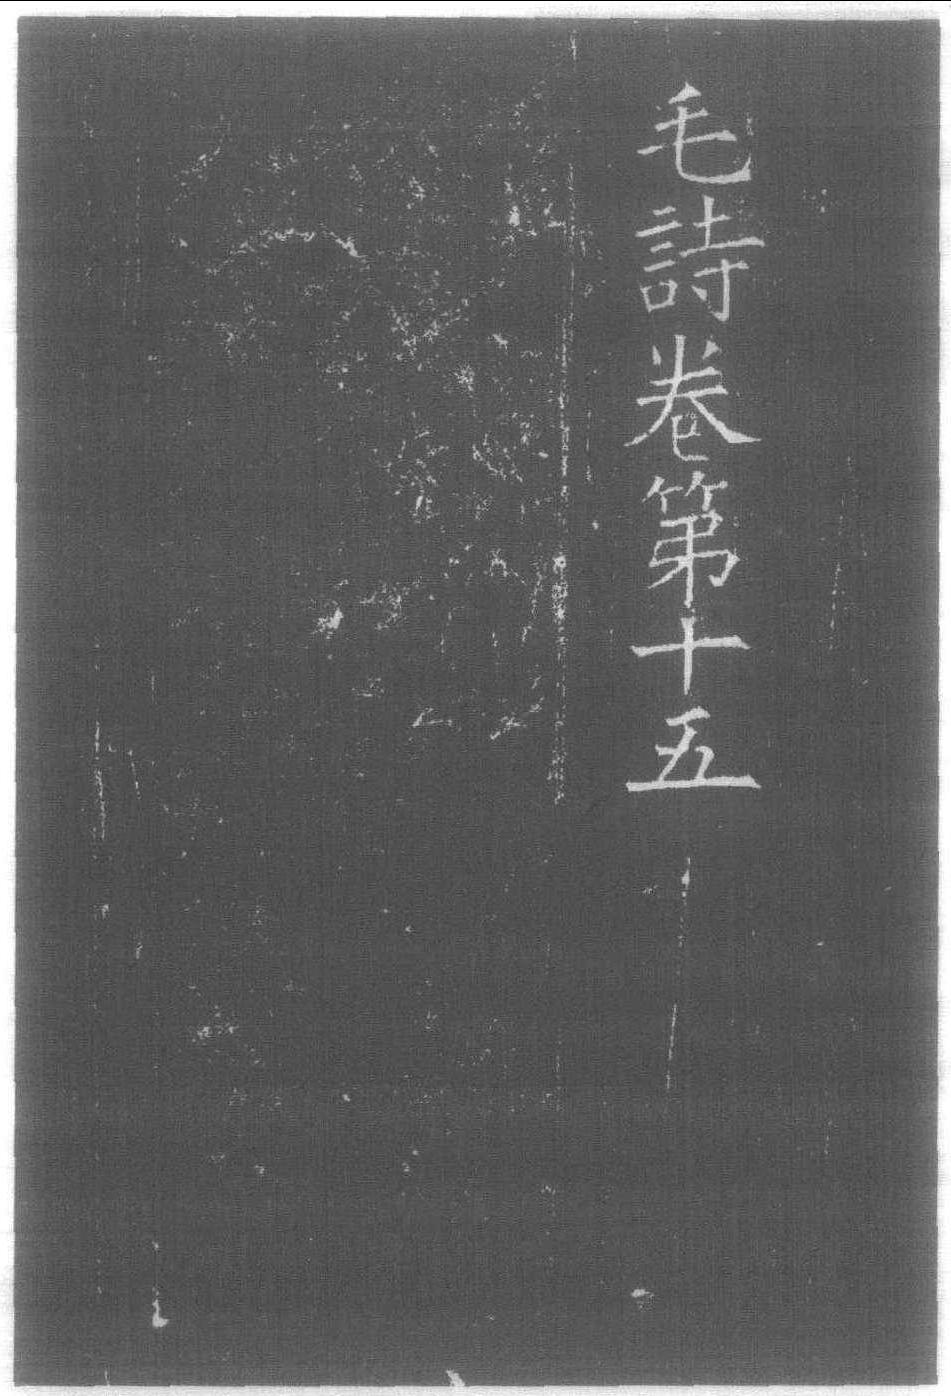 毛詩卷第十五